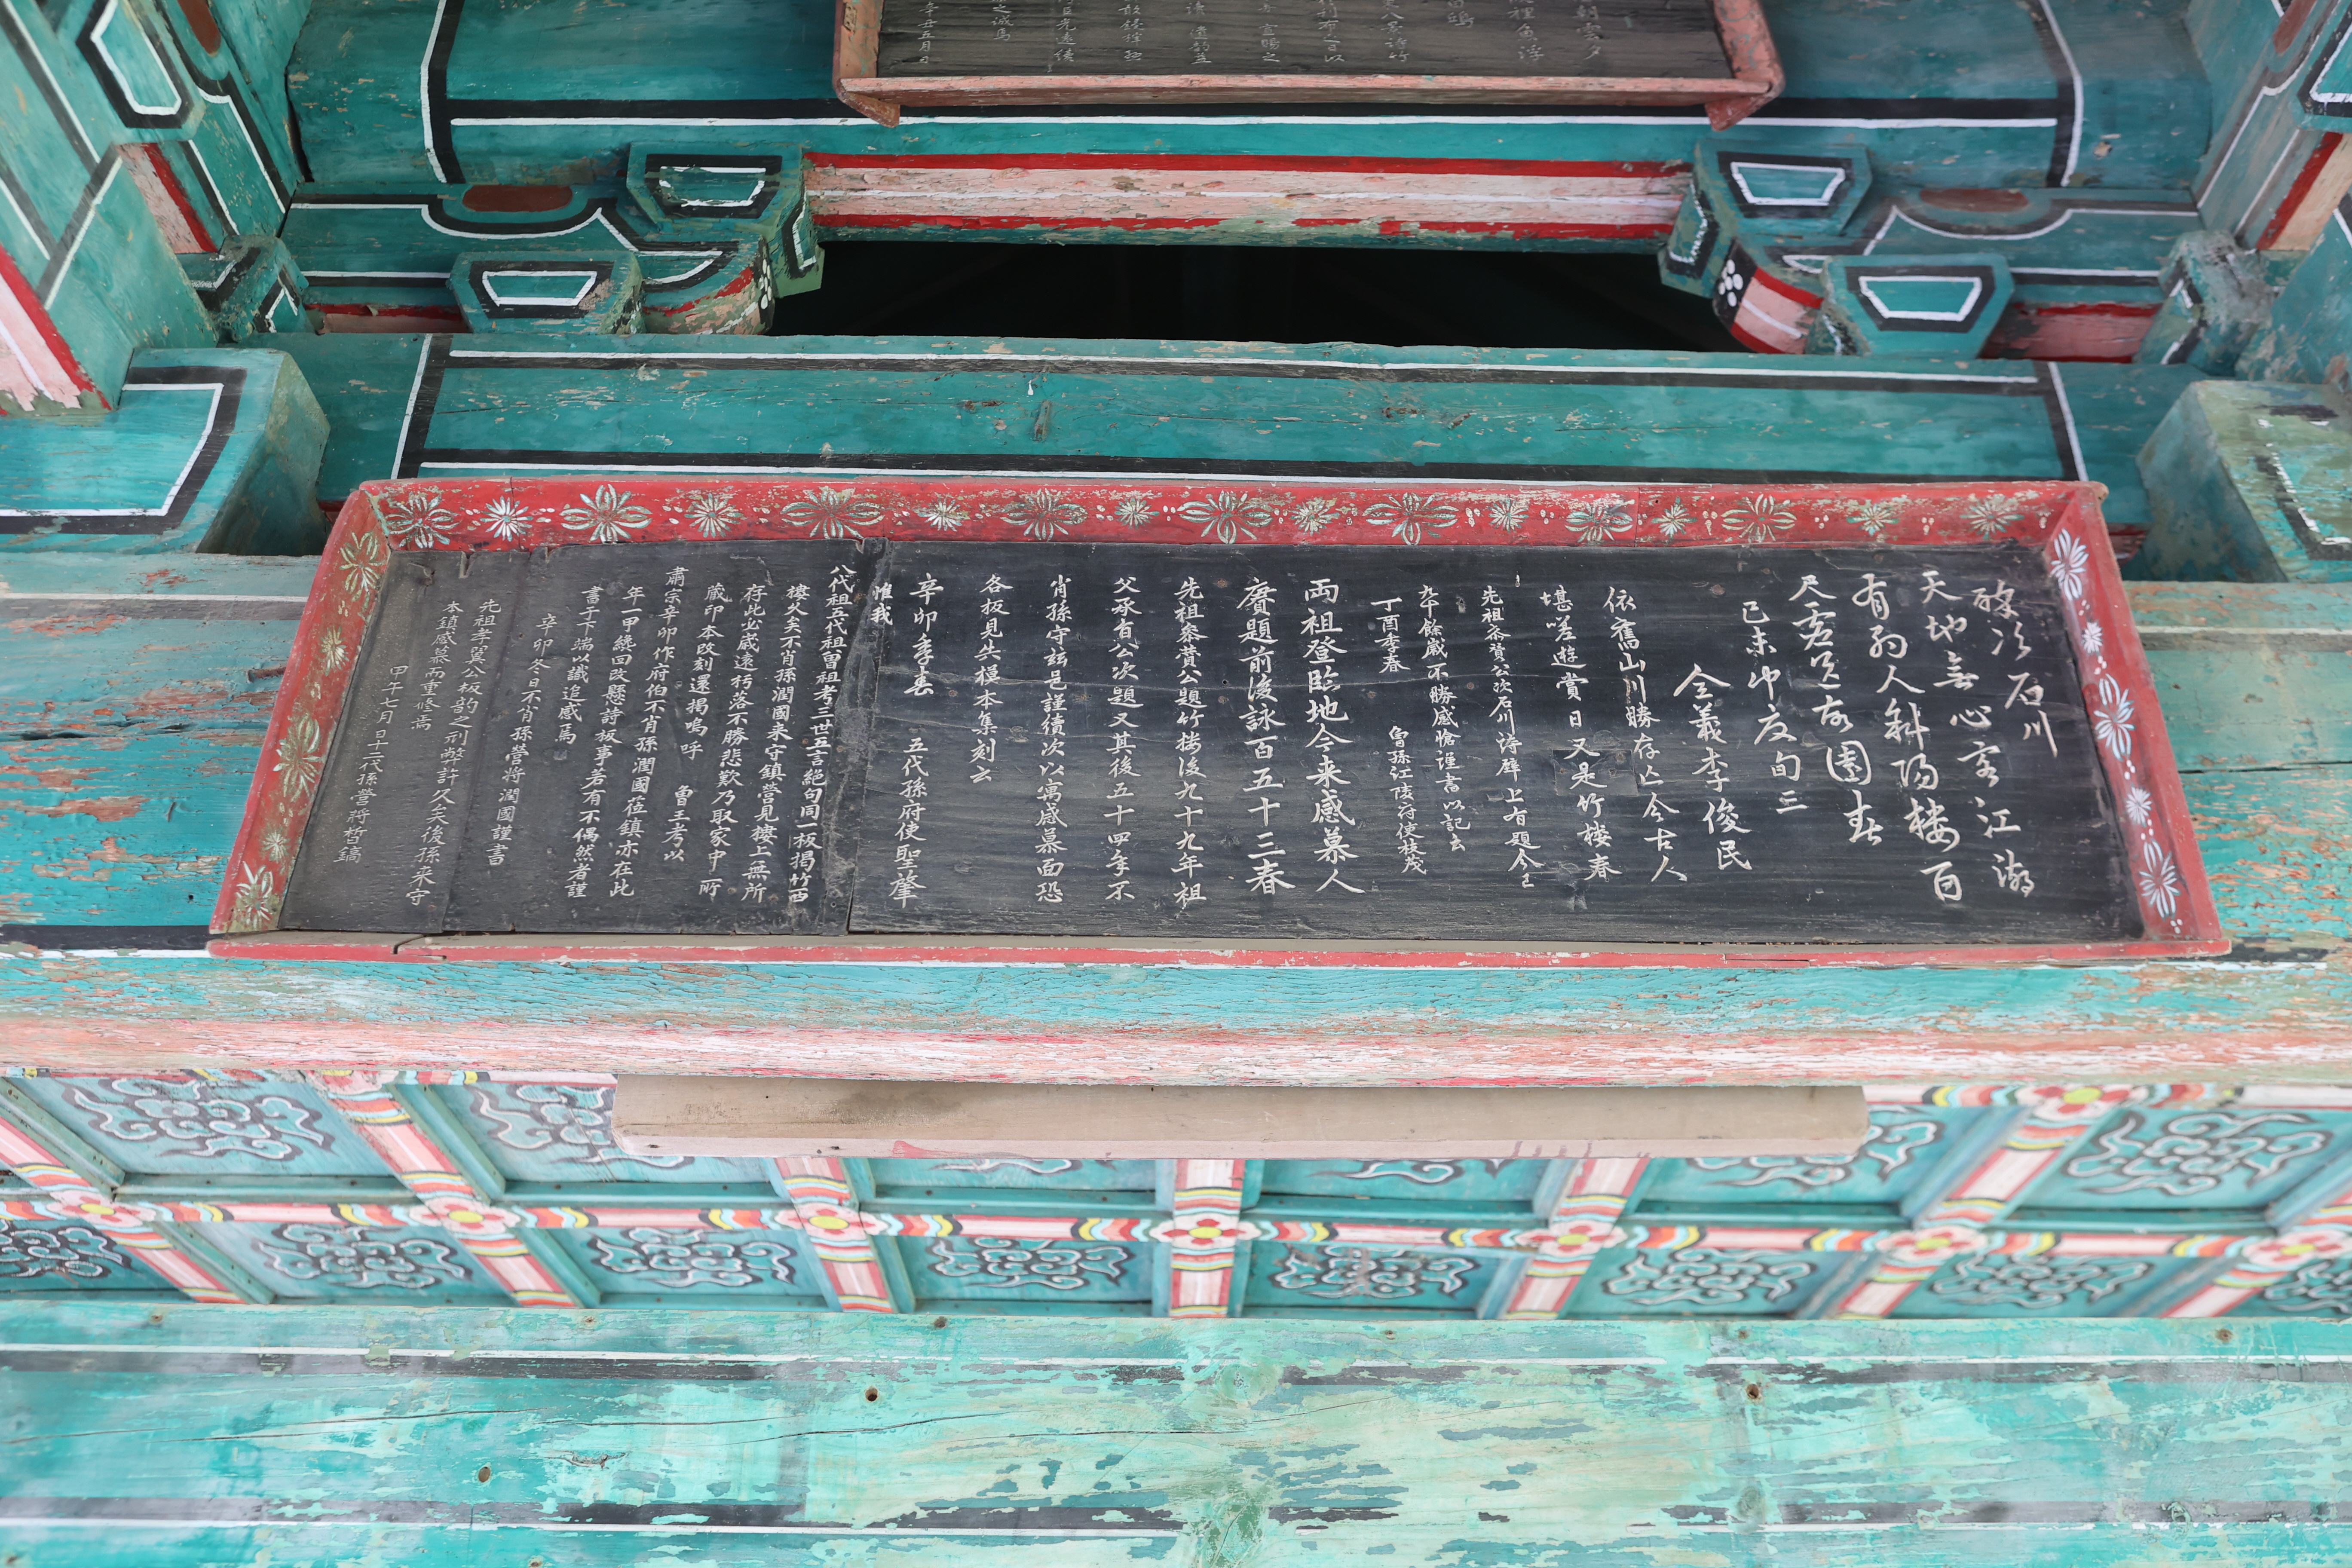 朝雲夕
裡魚浮
醉次石川
天地無心客江湖
有約人斜陽樓百
尺虛送故園春
己未仲夏旬三
全義李俊民
依舊山川勝存亡今古人
堪嗟遊賞日又是竹樓春
先祖叅賛公次石川詩壁上有題今已
九十餘歲不勝感愴謹書以記云
丁酉季春 曾孫江陵府使枝茂
兩祖登臨地今来感慕人
賡題前後詠百五十三春
先祖叅賛公題竹楼後九十九年祖
父承旨公次題又其後五十四年不
肖孫守玆邑謹續次以寓感慕而恐
各板見失模本集刻云
辛卯季春 五代孫府使聖肇
惟我
八代祖五代祖曾祖考三世五言絕句同一板揭竹西
樓久矣不肖孫潤國来守鎮營見樓上無所
存此必歲遠朽落不勝悲歎乃取家中所
藏印本改刻還揭嗚呼 曾王考以
肅宗辛卯作府伯不肖孫潤國莅鎮亦在此
年一甲纔回改懸詩板事若有不偶然者謹
書于下端以識追感焉
辛卯冬日不肖孫營將潤國謹書
先祖孝翼公板韵之刓弊許久矣後孫来守
本鎮感慕而重修焉
甲午七月日十二代孫營將晳鎬